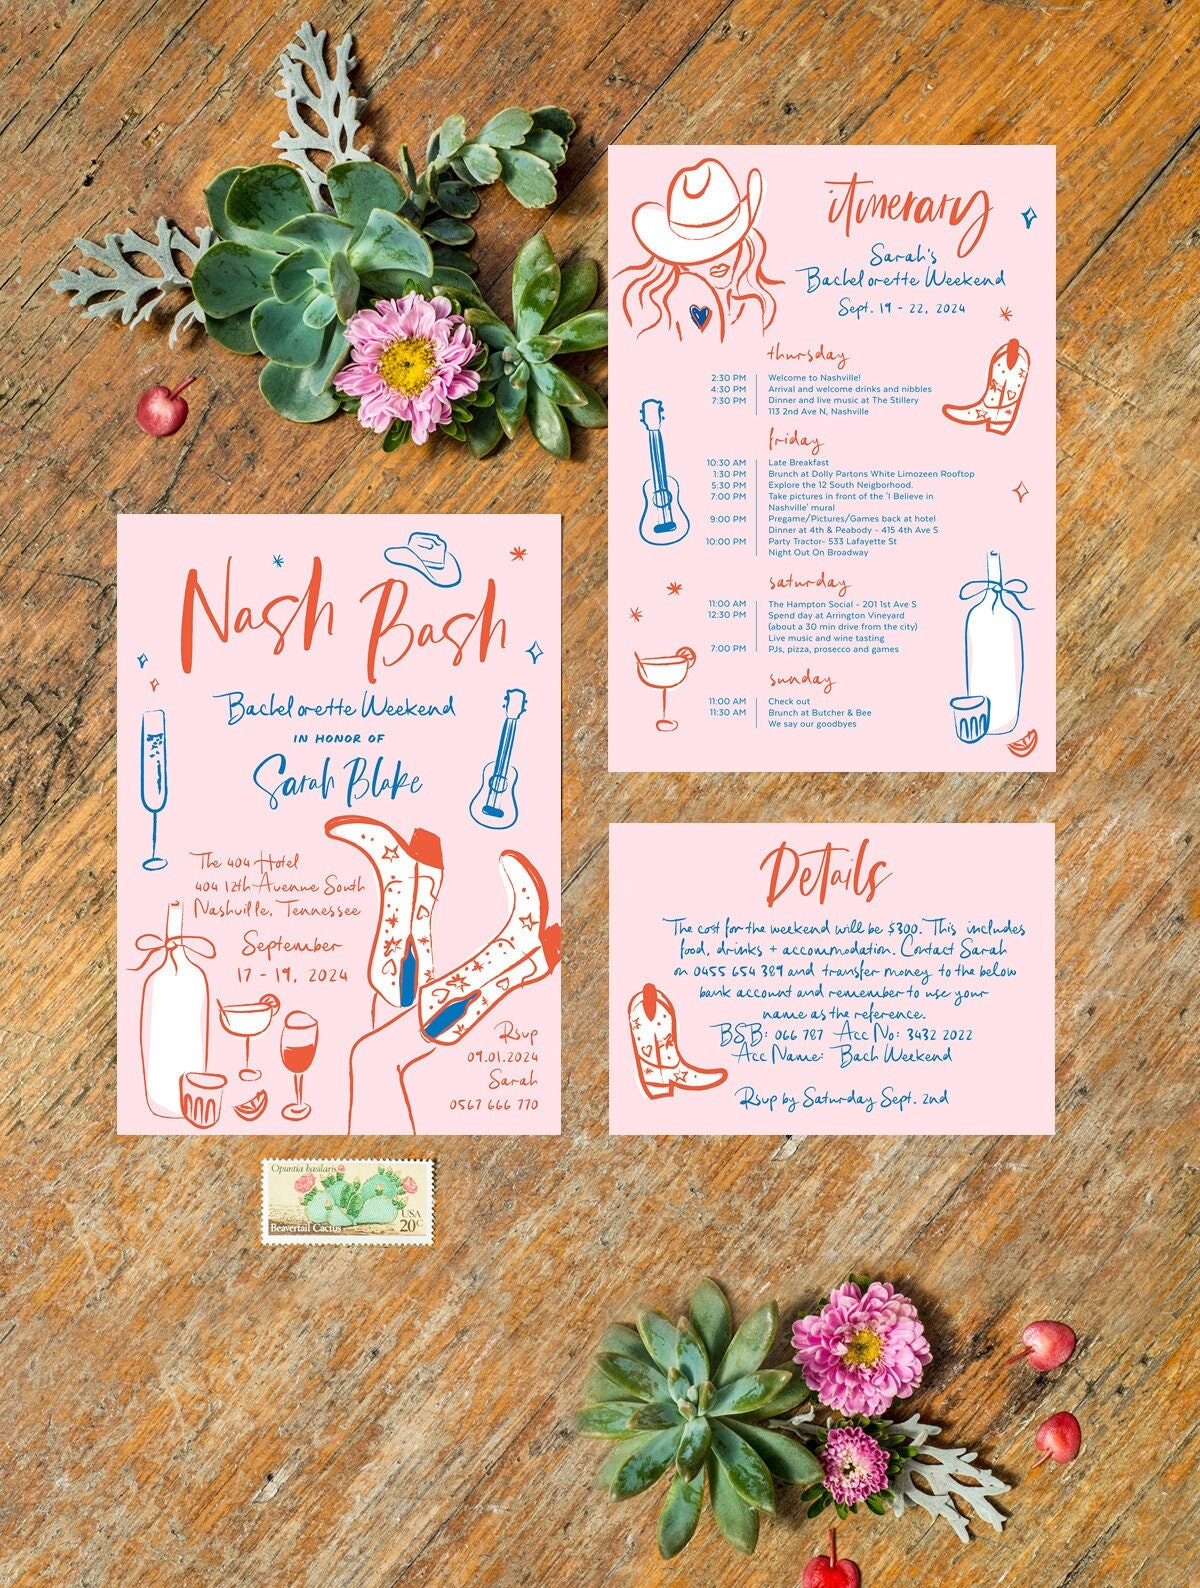 Nash Bash
Bachelorette Weekend
IN HONOR OF
Sarah Blake
The 404 Hotel
404 12th Avenue South
Nashville, Tennessee
September
17 - 19, 2024
Rsvp
09.01.2024
Sarah
0567 666 770
itinerary
Sarah's
Bachelorette Weekend
Sept. 19 - 22, 2024
thursday
2:30 PM Welcome to Nashville!
4:30 PM Arrival and welcome drinks and nibbles
7:30 PM Dinner and live music at The Stillery
113 2nd Ave N, Nashville
friday
10:30 AM Late Breakfast
1:30 PM Brunch at Dolly Partons White Limozeen Rooftop
5:30 PM Explore the 12 South Neigborhood.
7:00 PM Take pictures in front of the 'I Believe in
Nashville' mural
9:00 PM Pregame/Pictures/Games back at hotel
Dinner at 4th & Peabody - 415 4th Ave S
10:00 PM Party Tractor- 533 Lafayette St
Night Out On Broadway
saturday
11:00 AM The Hampton Social - 201 1st Ave S
12:30 PM Spend day at Arrington Vineyard
(about a 30 min drive from the city)
Live music and wine tasting
7:00 PM PJs, pizza, prosecco and games
sunday
11:00 AM Check out
11:30 AM Brunch at Butcher & Bee
We say our goodbyes
Details
The cost for the weekend will be $300. This includes
food, drinks + accommodation. Contact Sarah
on 0455 654 389 and transfer money to the below
bank account and remember to use your
name as the reference.
BSB: 066 787 Acc No: 3432 2022
Acc Name: Bach Weekend
Rsvp by Saturday Sept. 2nd
Opuntia basilaris
USA
20c
Beavertail Cactus